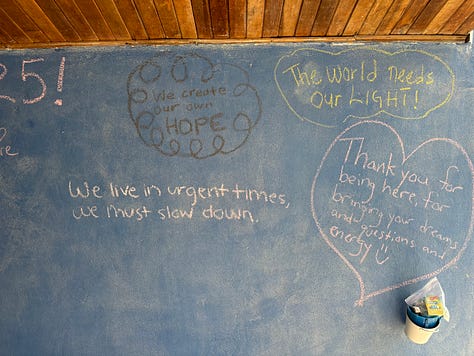 25!
We create
our own
HOPE
The World Needs
Our LIGHT!
We live in urgent times,
we must slow down.
Thank you for
being here, for
bringing your dreams
and questions and
energy